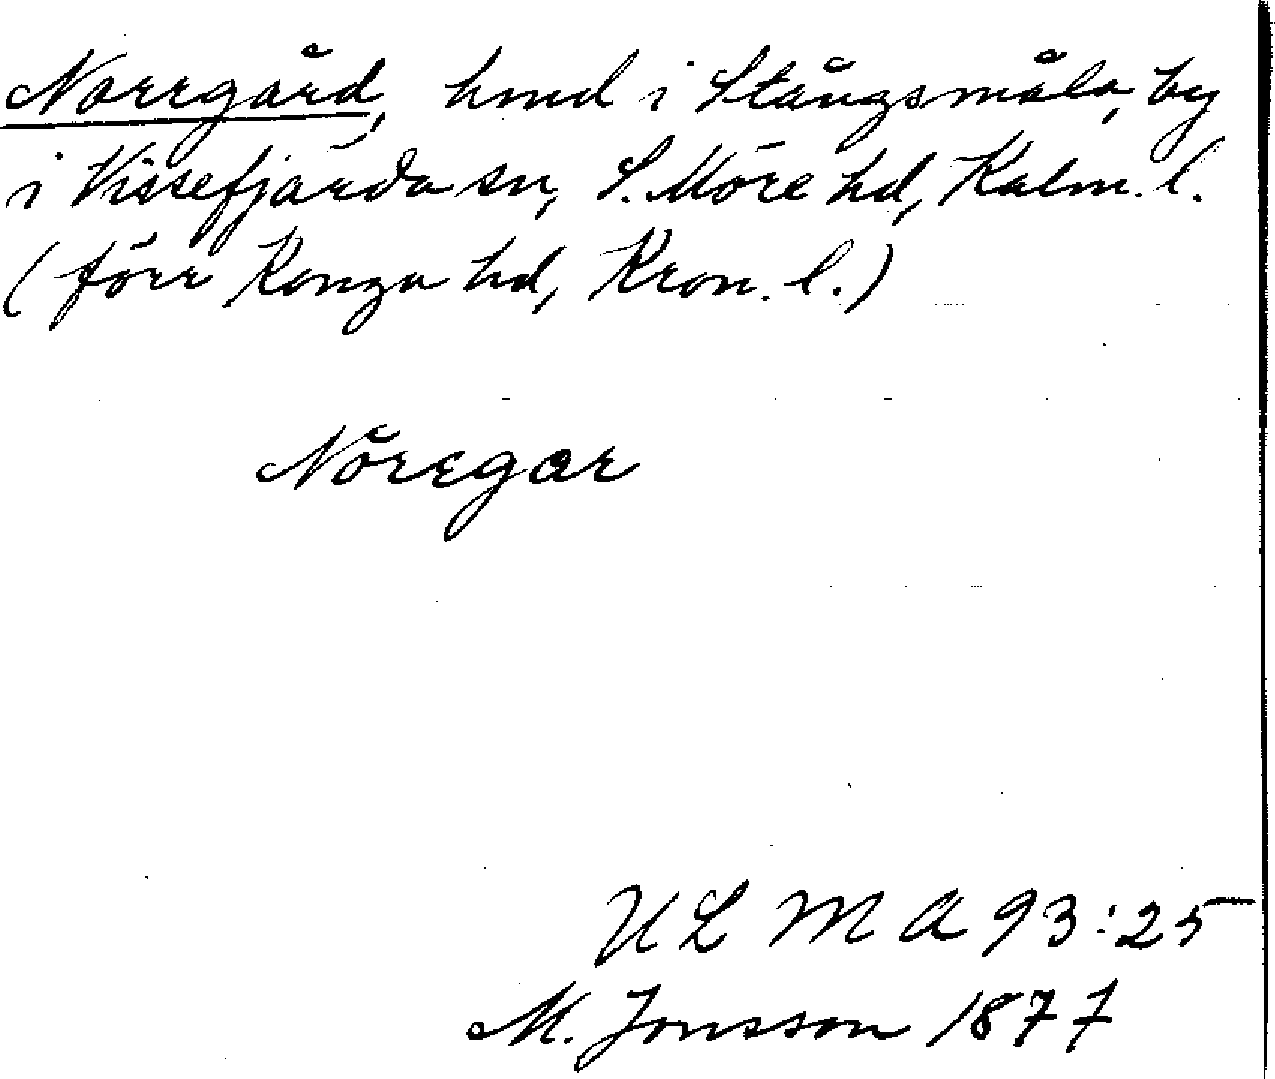 Norrgård, hmd i Stångsmåla, by
i Vissefjärda sn, S. Möre hd, Kalm. l.
(förr Konga hd, Kron. l.)
Nöregar
ULMA 93:25
M. Jonsson 1877